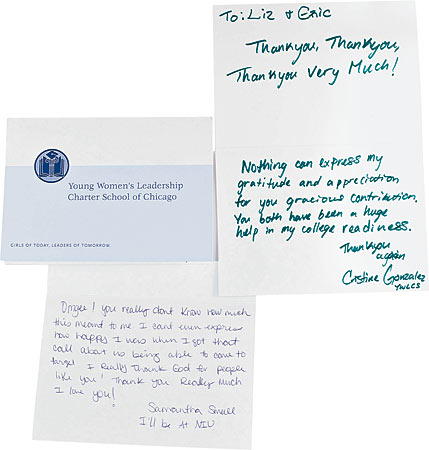 To: Liz & Eric
Thankyou, Thankyou,
Thankyou Very Much!
Nothing can express my
gratitude and appreciation
for you gracious contribution.
You both have been a huge
help in my college readiness.
Thankyou
again
Cristine Gonzalez
YWLCS
Young Women's Leadership
Charter School of Chicago
GIRLS OF TODAY, LEADERS OF TOMORROW.
you really dont know how much
this meant to me I cant even express
how happy I was when I got that
call about us being able to come to
target I Really Thank God for people
like you! Thank you Really Much
I love you!
Samantha Small
I'll be At NIU